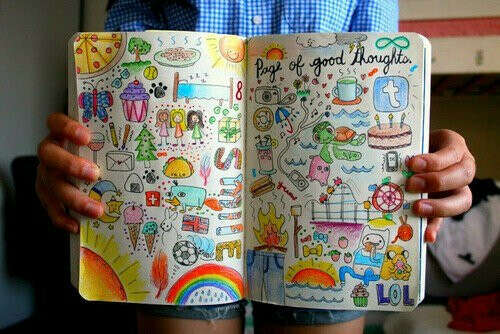 Page of good thoughts.
8
t
LOL